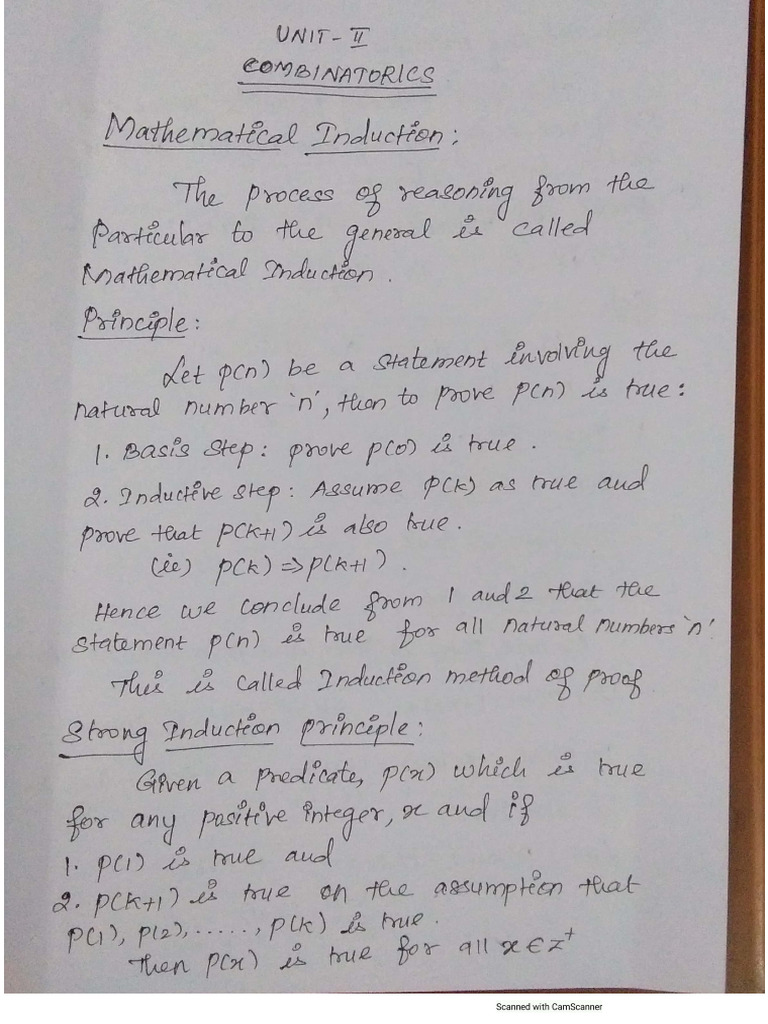 UNIT-II
COMBINATORICS
Mathematical Induction:
The process of reasoning from the
Particular to the general is called
Mathematical Induction.
Principle:
Let P(n) be a statement involving the
natural number 'n', then to prove P(n) is true:
1. Basis Step: prove P(0) is true.
2. Inductive step: Assume P(k) as true and
prove that P(k+1) is also true.
(ie) P(k) => P(k+1).
Hence we conclude from 1 and 2 that the
statement P(n) is true for all natural numbers 'n'
This is called Induction method of proof
Strong Induction principle:
Given a predicate, P(x) which is true
for any positive integer, x and if
1. P(1) is true and
2. P(k+1) is true on the assumption that
P(1), P(2), ....., P(k) is true.
Then P(x) is true for all x ∈ Z⁺
Scanned with CamScanner